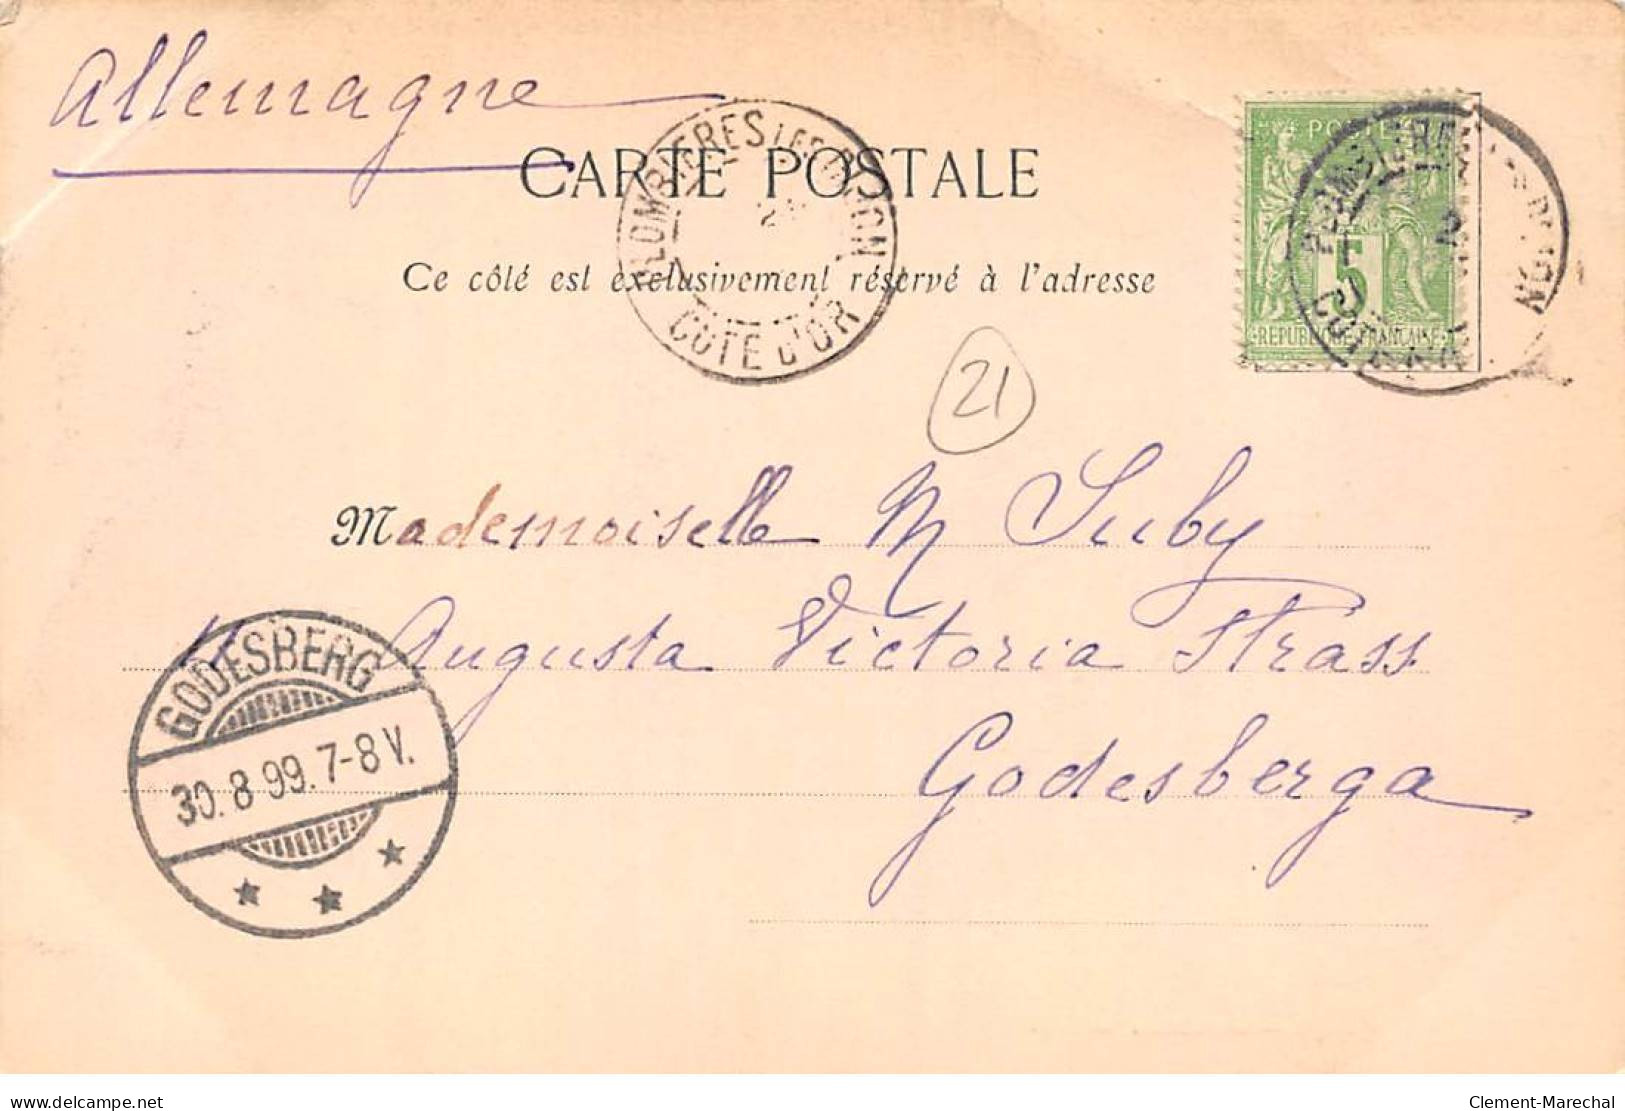 Allemagne
PLOMBIÈRES LES DIJON
CÔTE D'OR
CARTE POSTALE
Ce côté est exclusivement réservé à l'adresse
POSTES
5
REPUBLIQUE FRANÇAISE
21
Mademoiselle M Suby
Augusta Victoria Strass.
Godesberga
GODESBERG
30.8 99. 7-8 V.
delcampe.net
Clement-Marechal